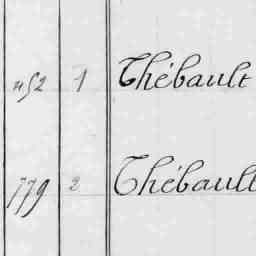 452 1 Thébault
779 2 Thébault